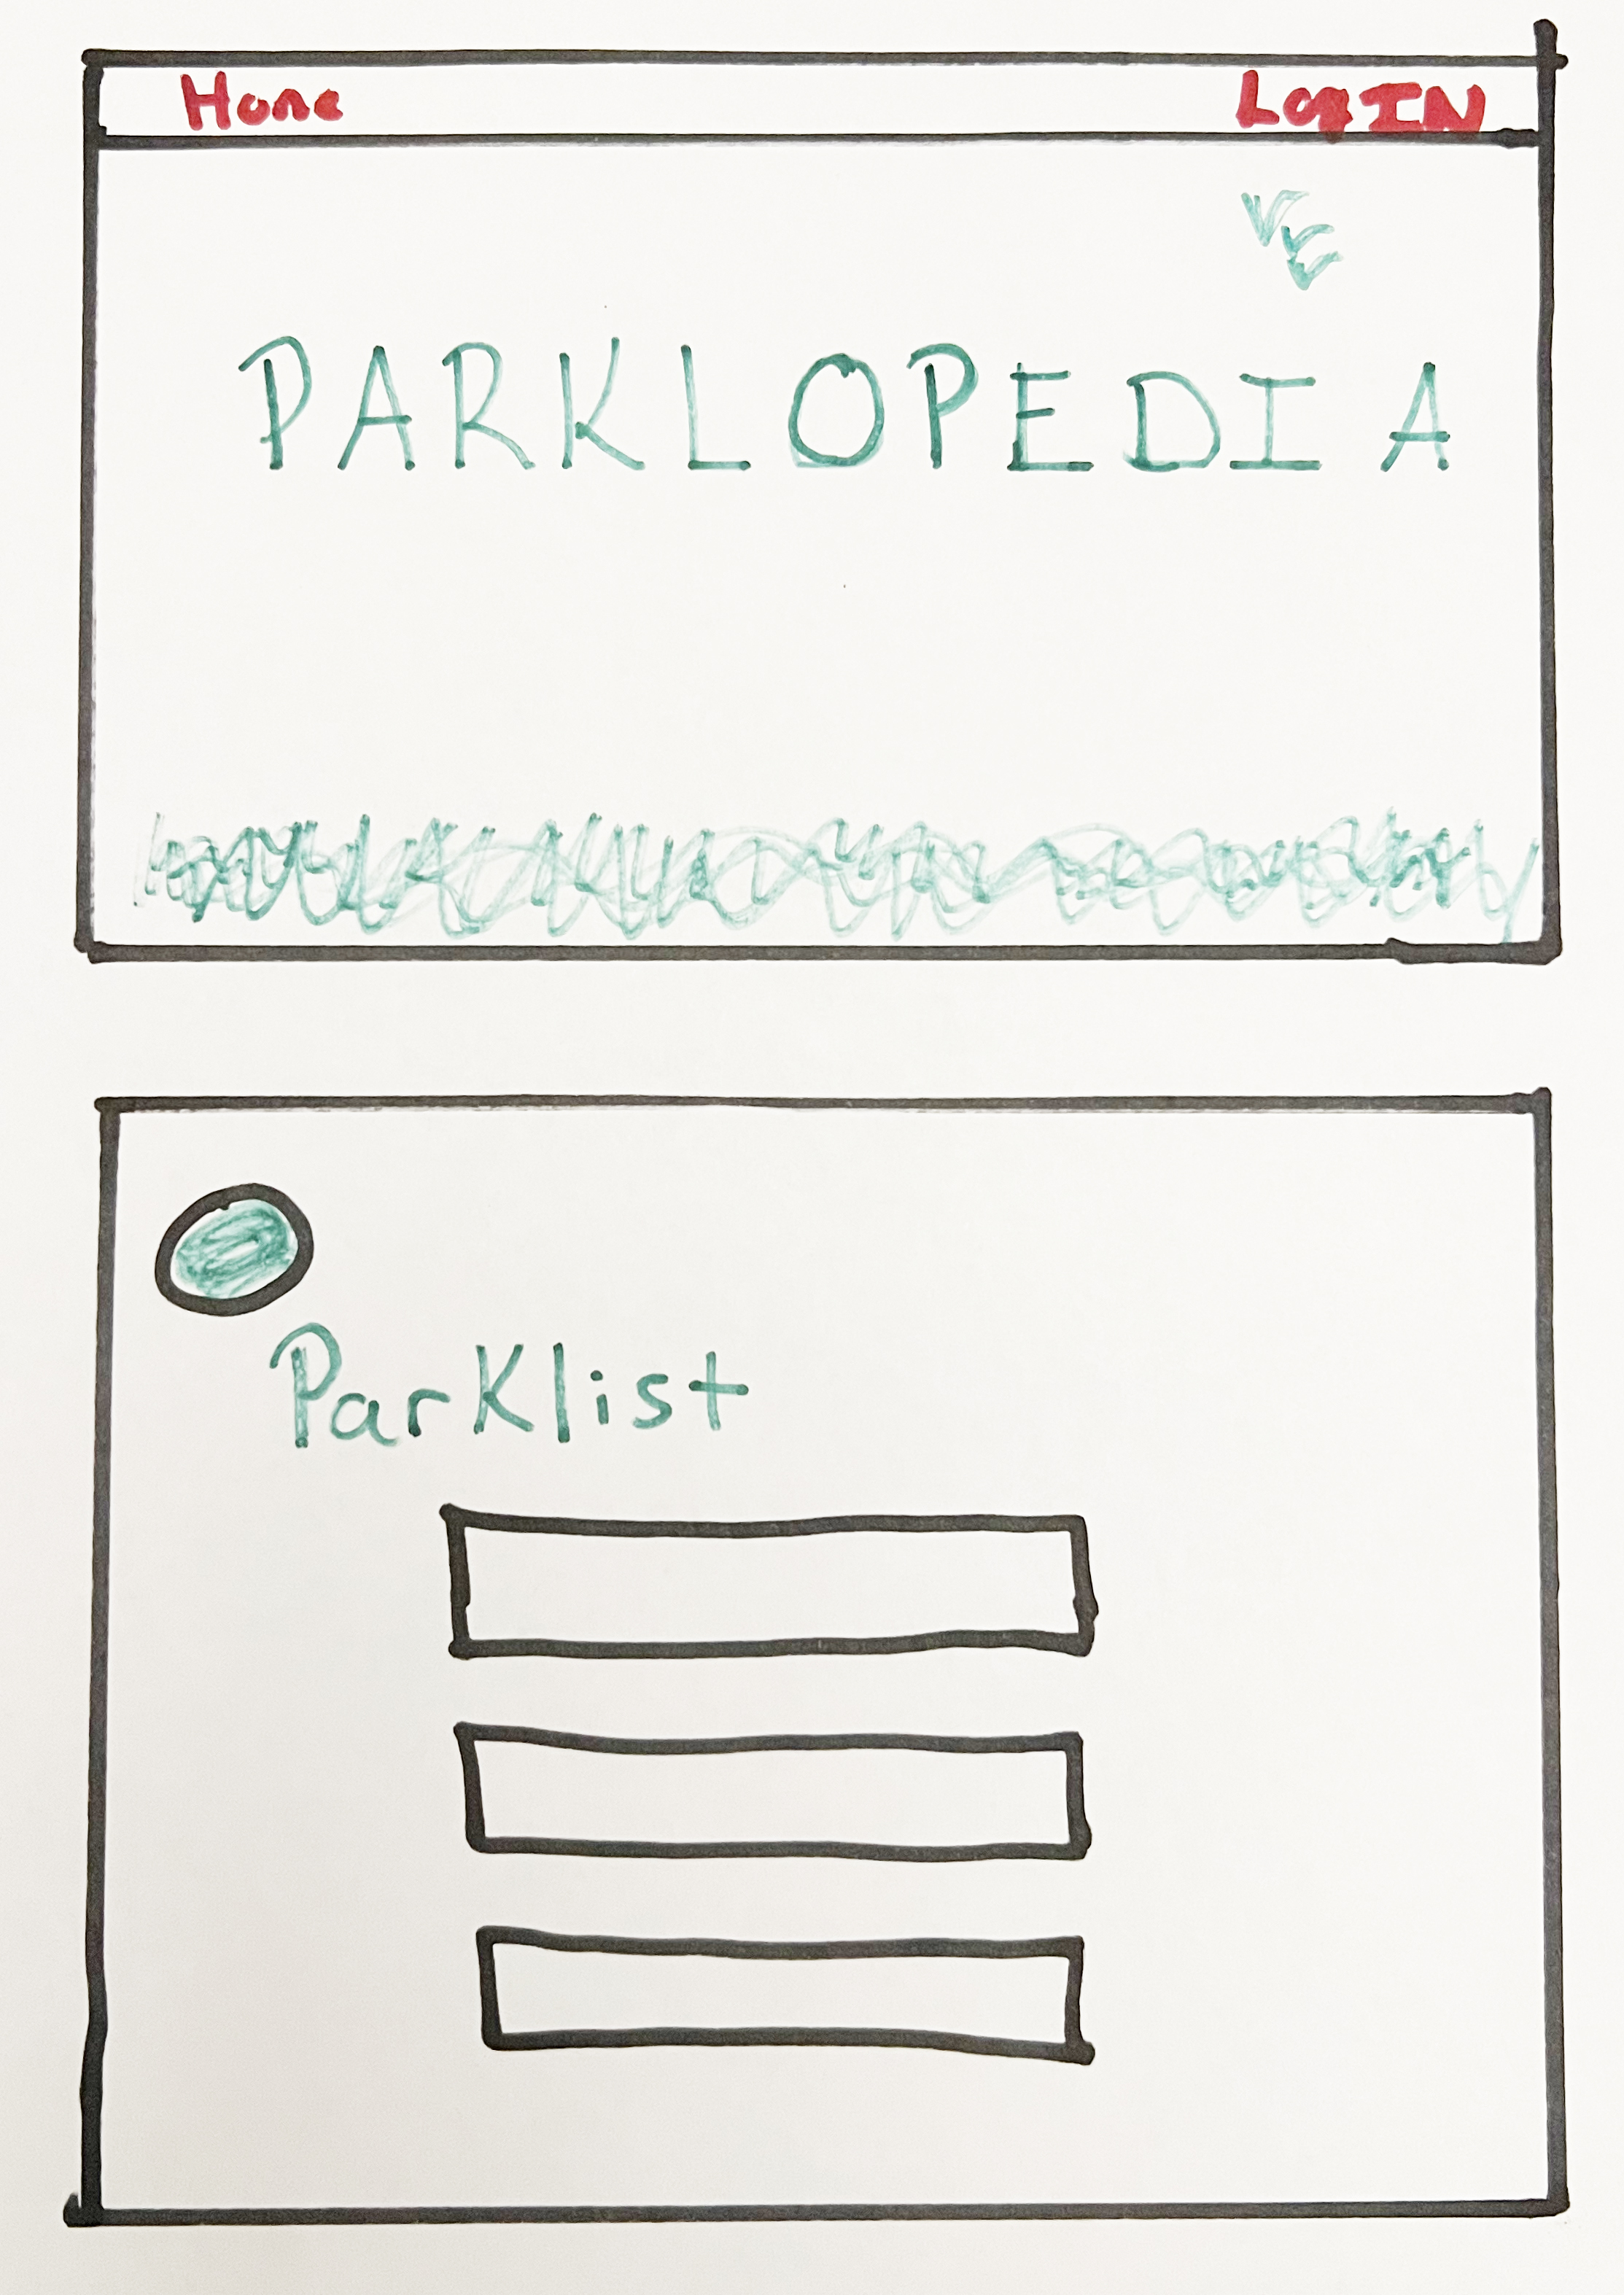 Home
LogIN
PARKLOPEDIA
Parklist